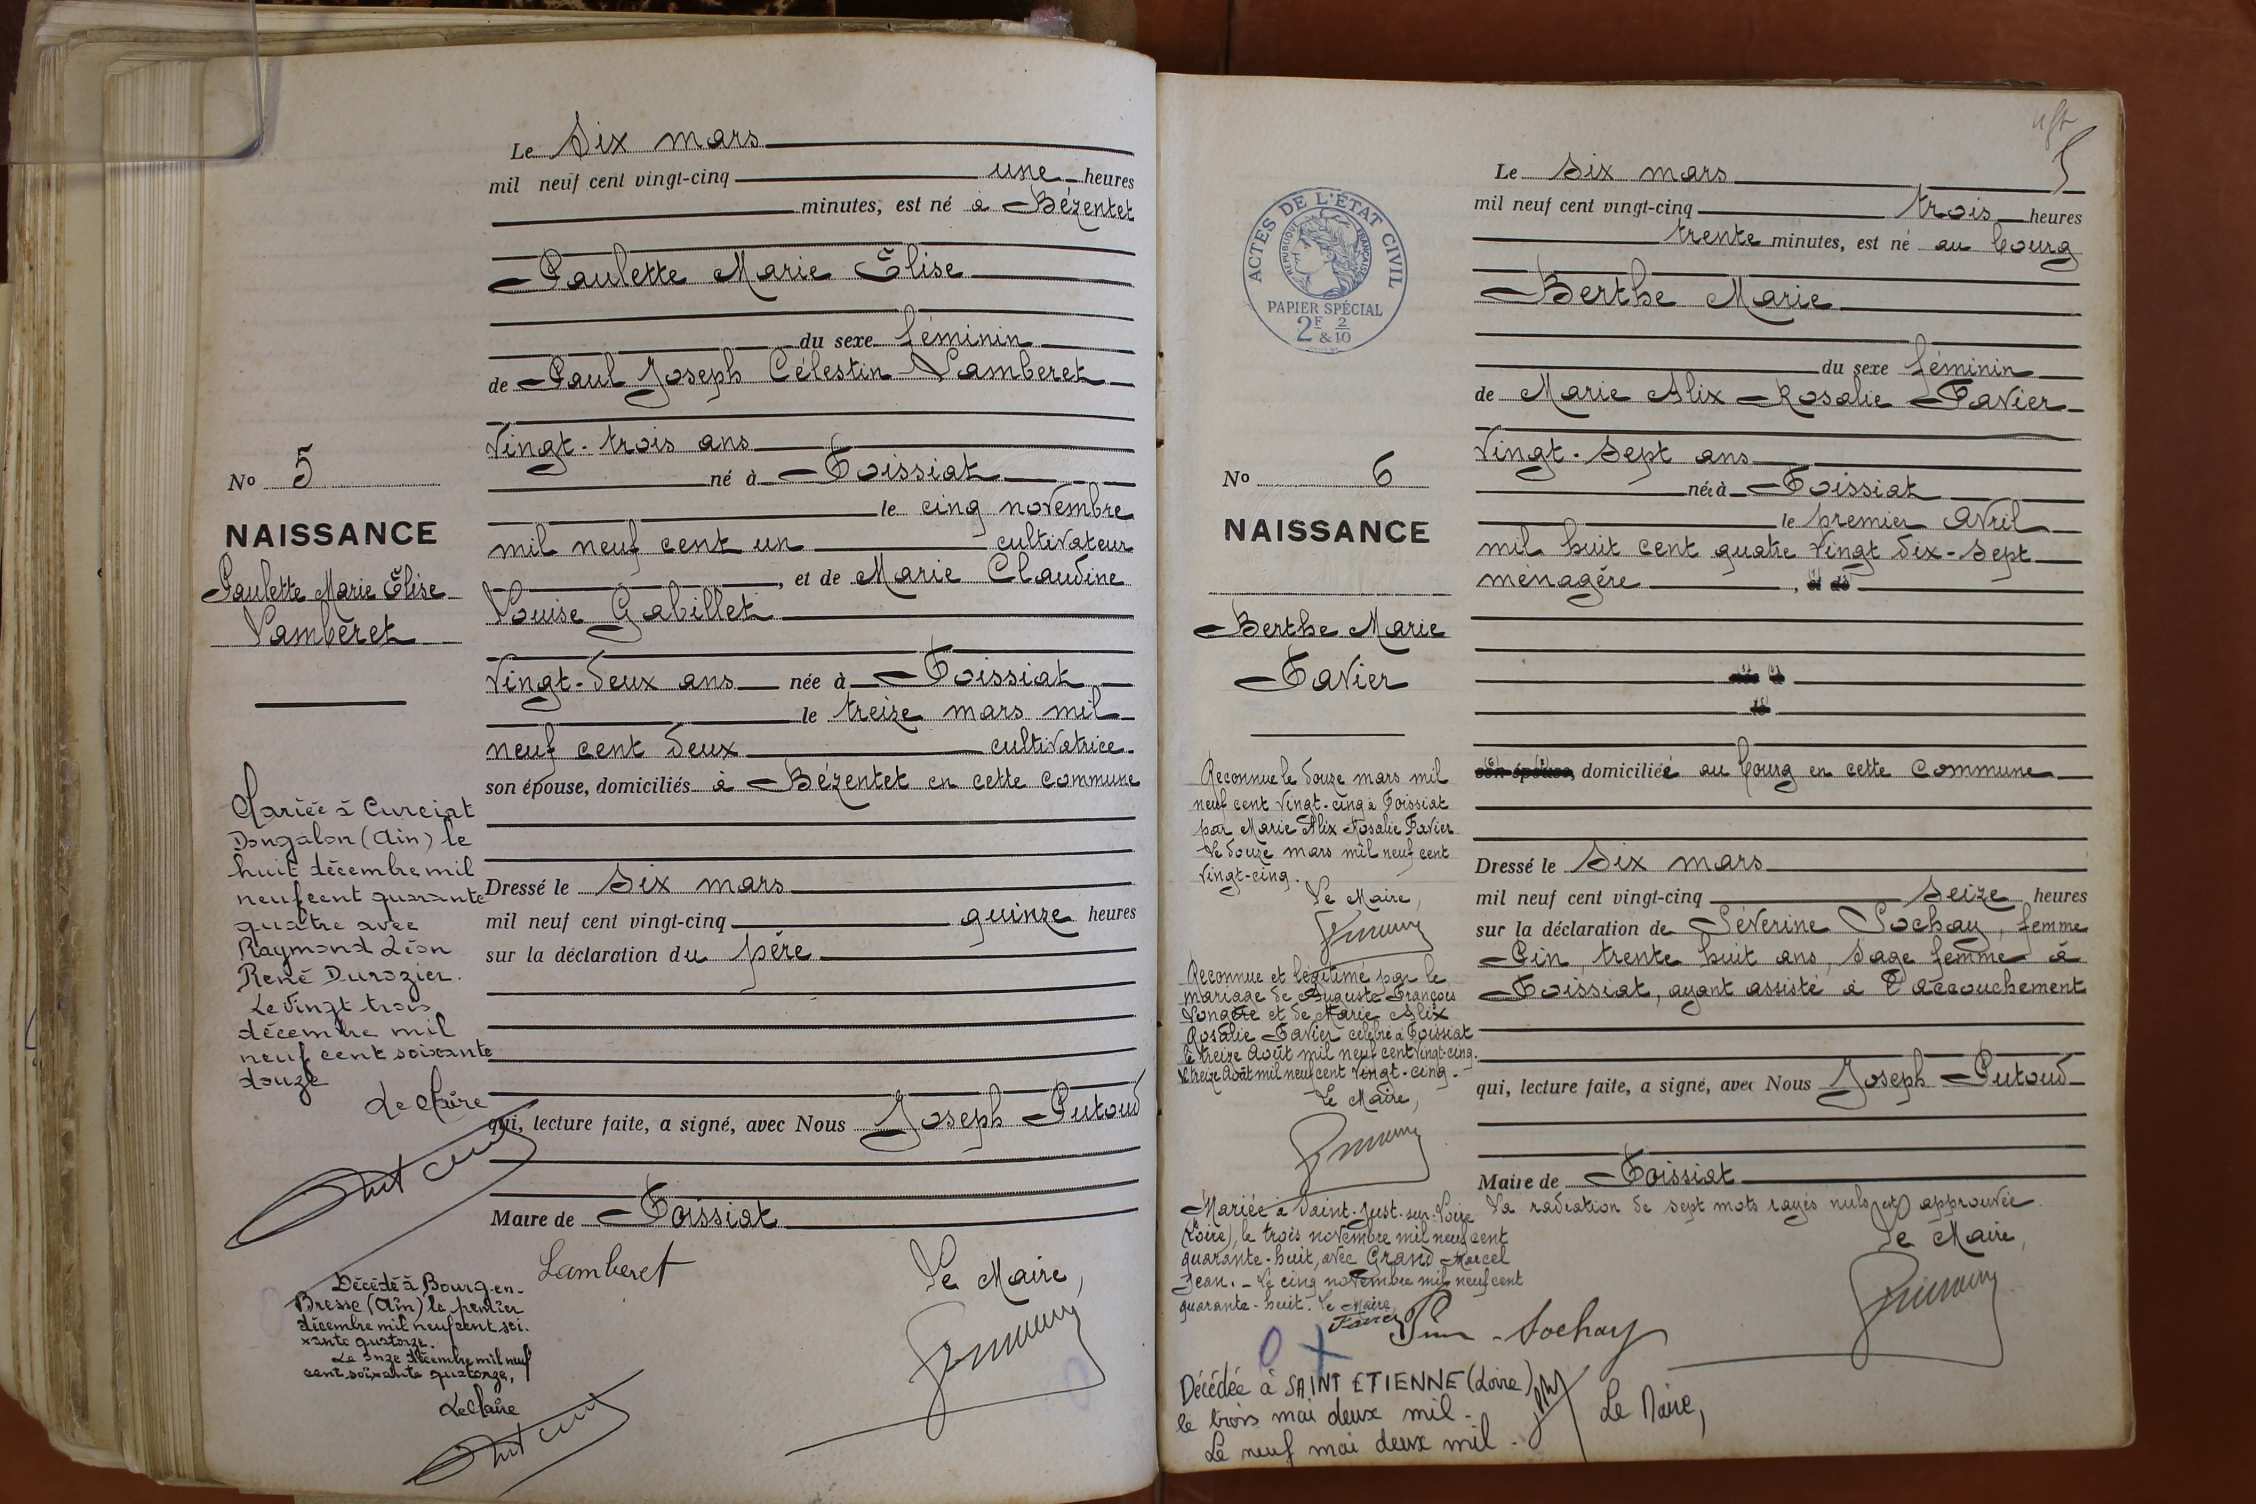 Le Six mars
mil neuf cent vingt-cinq une heures
minutes, est né à Bézentet
Paulette Marie Élise
du sexe féminin
de Paul Joseph Célestin Lamberet
vingt-trois ans
né à Foissiat
le cinq novembre
mil neuf cent un cultivateur
, et de Marie Claudine
Louise Gabillet
vingt-deux ans née à Foissiat
le treize mars mil
neuf cent deux cultivatrice
son épouse, domiciliés à Bézentet en cette commune
Dressé le six mars
mil neuf cent vingt-cinq quinze heures
sur la déclaration du père
qui, lecture faite, a signé, avec Nous Joseph Putoud
Maire de Foissiat
Lamberet
Le Maire,
No 5
NAISSANCE
Paulette Marie Élise
Lamberet
Mariée à Curciat
Dongalon (Ain) le
huit décembre mil
neuf cent quarante
quatre avec
Raymond Léon
René Durozier.
Le vingt trois
décembre mil
neuf cent soixante
douze
Le Maire
Décédé à Bourg-en-
Bresse (Ain) le premier
décembre mil neuf cent soi-
xante quatorze.
Le onze décembre mil neuf
cent soixante quatorze,
Le Maire
5
Le six mars
mil neuf cent vingt-cinq trois heures
trente minutes, est né au bourg
Berthe Marie
du sexe féminin
de Marie Alix Rosalie Favier
vingt-sept ans
née à Foissiat
le premier avril
mil huit cent quatre vingt dix-sept
ménagère , et de
son épouse, domiciliée au bourg en cette commune
Dressé le six mars
mil neuf cent vingt-cinq seize heures
sur la déclaration de Séverine Sochay, femme
Pin, trente huit ans, sage femme à
Foissiat, ayant assisté à l'accouchement
qui, lecture faite, a signé, avec Nous Joseph Putoud
Maire de Foissiat
La radiation de sept mots rayés nuls est approuvée
Le Maire,
Pin - Sochay
ACTES DE L'ÉTAT CIVIL
RÉPUBLIQUE FRANÇAISE
PAPIER SPÉCIAL
2F & 2/10
No 6
NAISSANCE
Berthe Marie
Favier
Reconnue le douze mars mil
neuf cent vingt-cinq à Foissiat
par Marie Alix Rosalie Favier
Le douze mars mil neuf cent
vingt-cinq.
Le Maire,
Reconnue et légitimé par le
mariage de Auguste François
et de Marie Alix
Rosalie Favier célébré à Foissiat
le treize Août mil neuf cent vingt-cinq.
Le treize Août mil neuf cent vingt-cinq.
Le Maire,
Mariée à Saint-Just-sur-Loire
(Loire), le trois novembre mil neuf cent
quarante-huit, avec Grand Marcel
Jean. - Le cinq novembre mil neuf cent
quarante-huit. Le Maire,
Décédée à SAINT ETIENNE (Loire)
le trois mai deux mil -
Le neuf mai deux mil -
Le Maire,